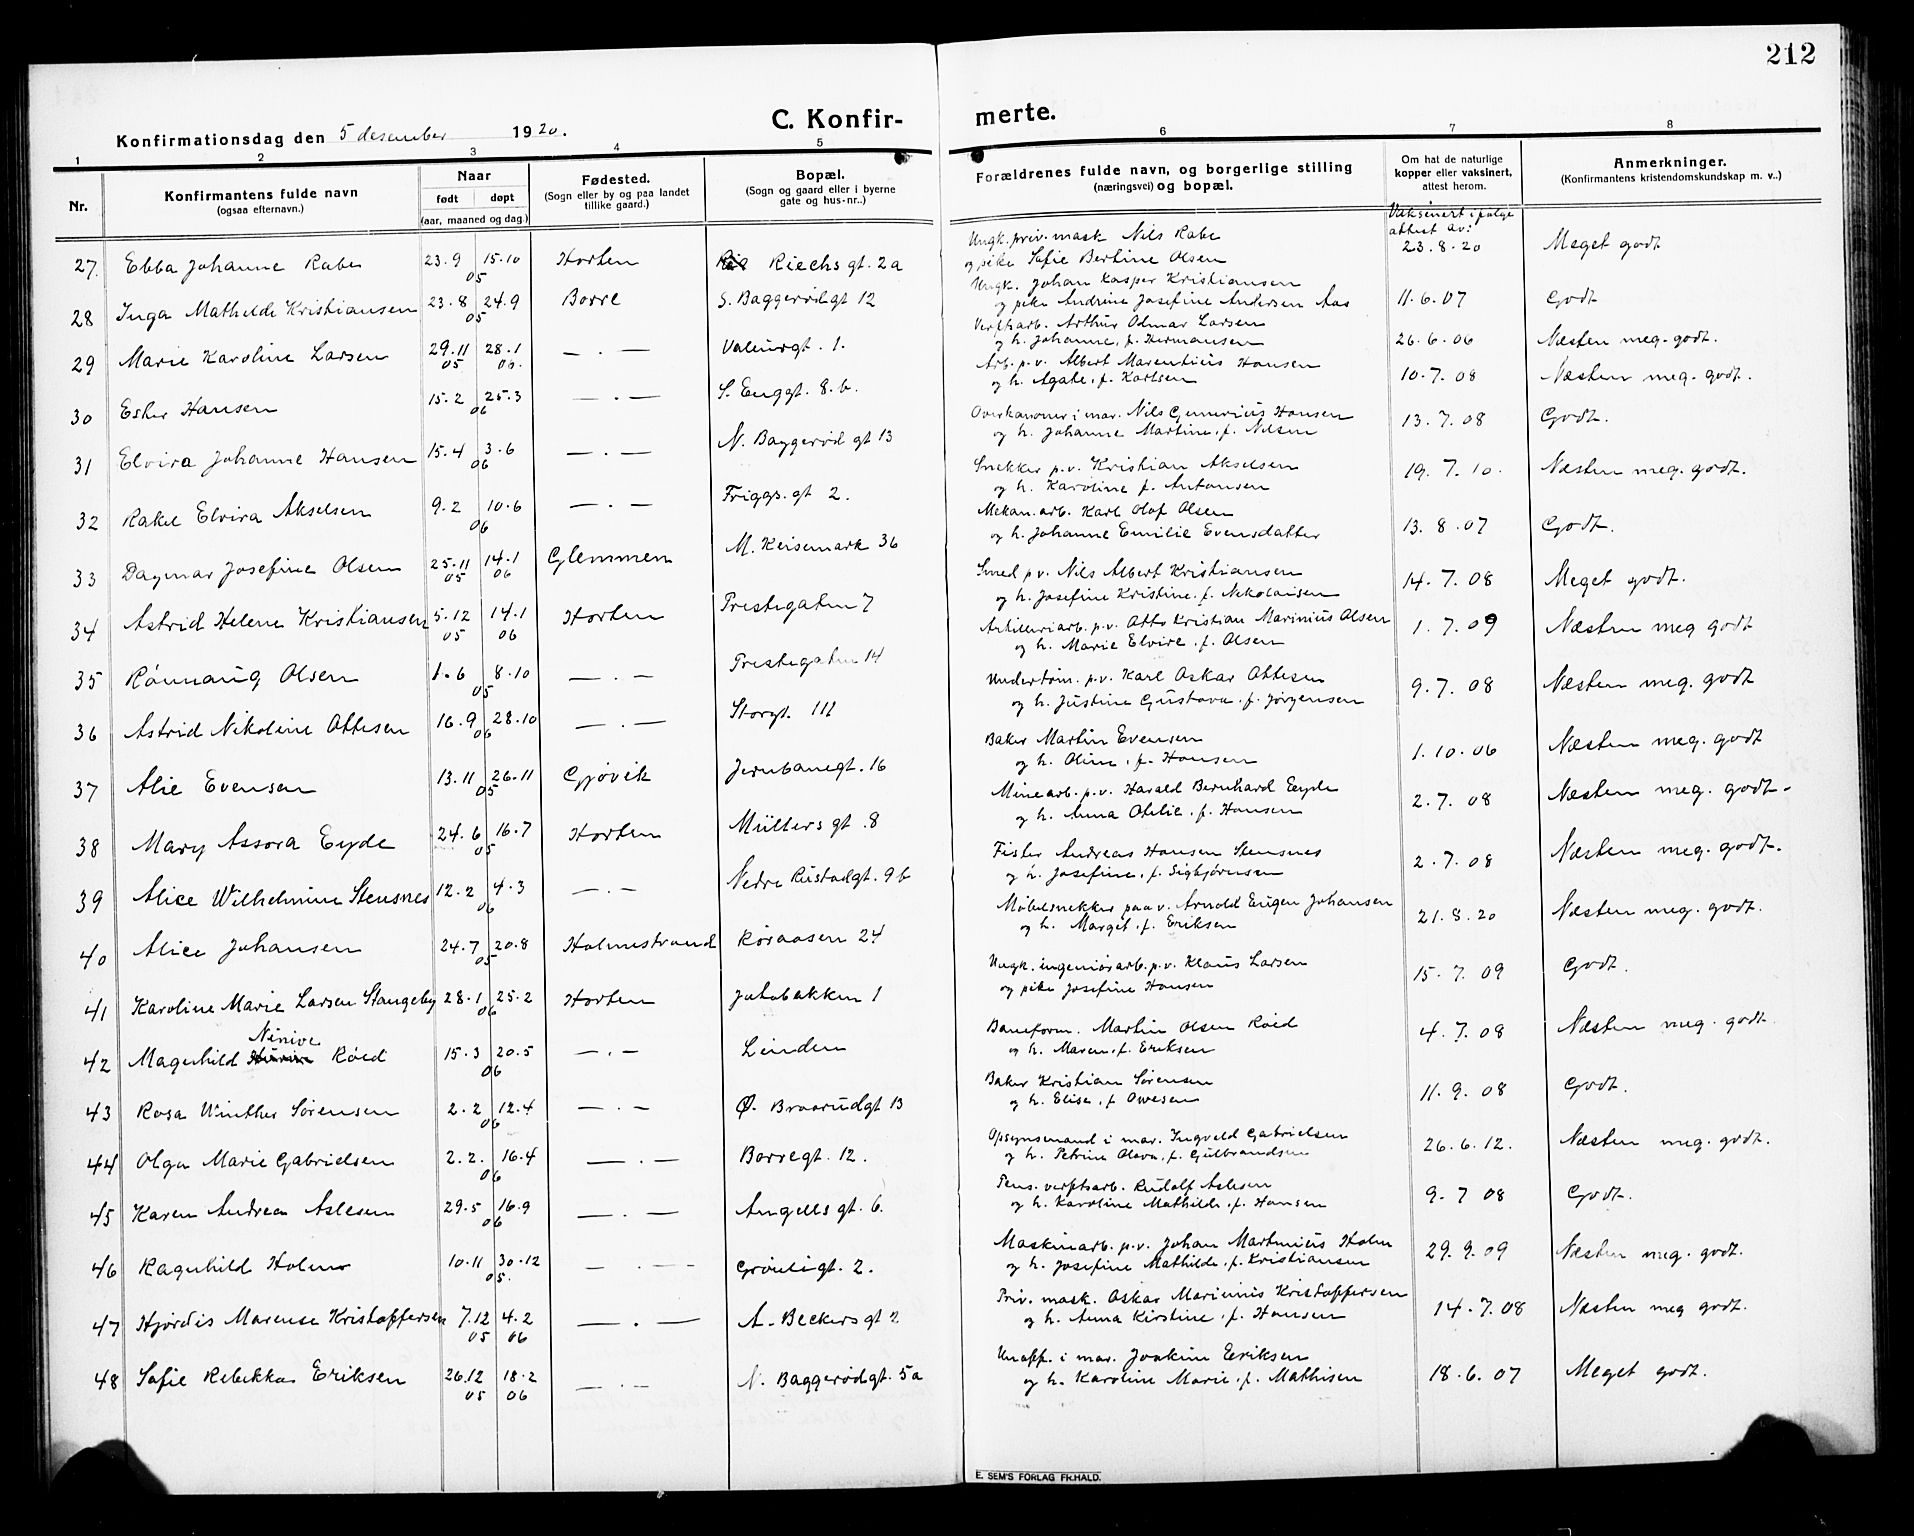 212
C. Konfir- merte.
Konfirmationsdag den 5 desember 1920.
1 2 3 4 5 6 7 8
Nr.
Konfirmantens fulde navn
(ogsaa efternavn.)
Naar
født døpt
(aar, maaned og dag.)
Fødested.
(Sogn eller by og paa landet
tillike gaard.)
Bopæl.
(Sogn og gaard eller i byerne
gate og hus-nr..)
Forældrenes fulde navn, og borgerlige stilling
(næringsvei) og bopæl.
Om hat de naturlige
kopper eller vaksinert,
attest herom.
Anmerkninger.
(Konfirmantens kristendomskundskap m. v..)
Vaksinert ifølge
attest av:
27 Ebba Johanne Rabe 23.9 15.10 05 Horten Riechs gt. 2a Ungk. priv. mask Nils Rabe 23.8.20 Meget godt
og pike Sofie Bertine Olsen
28 Inga Mathilde Kristiansen 23.8 24.9 05 Borre S. Baggerødgt 12 Ungk. Johan Kasper Kristiansen 11.6.07 Godt
og pike Andrine Josefine Andersen Aas
29 Marie Karoline Larsen 29.11 05 28.1 06. — . — Valeursgt. 1. Verftsarb. Arthur Odmar Larsen 26.6.06 Næsten meg. godt.
og h. Johanne, f. Hermansen
30 Ester Hansen 15.2 25.3 06 — . — S. Enggt. 8.b. Arb. p.v. Albert Marentius Hansen 10.7.08 Næsten meg. godt.
og h. Agate, f. Karlsen
31 Elvira Johanne Hansen 15.4 3.6 06 — . — N. Baggerød gt 13 Overkanoner i mar. Nils Gunerius Hansen 13.7.08 Godt.
og h. Johanne Martine, f. Nilsen
32 Rakel Elvira Akselsen 9.2 10.6 06 — . — Friggs. gt 2. Snekker p.v. Kristian Akselsen 19.7.10. Næsten meg. godt.
og h. Karoline f. Antonsen
33 Dagmar Josefine Olsen 25.11 05 14.1 06 Glemmen M. Keisemark 36 Mekan. arb. Karl Olof Olsen 13.8.07 Godt.
og h. Johanne Emilie Evensdatter
34 Astrid Helene Kristiansen 5.12 05 14.1 06 Horten Prestegaten 7 Smed p.v. Nils Albert Kristiansen 14.7.08 Meget godt.
og h. Josefine Kristine, f. Nikolaisen
35 Rønnaug Olsen 1.6 8.10 05 — . — Prestegaten 14 Artilleriarb. p.v. Otto Kristian Marinius Olsen 1.7.09 Næsten meg godt
og h. Marie Elvire, f. Olsen
36 Astrid Nikoline Ottesen 16.9 28.10 06 — . — Storgt. 111 Undertøm. p.v. Karl Oskar Ottesen 9.7.08 Næsten meg. godt
og h. Justine Gustava, f. Jørgensen
37 Alie Evensen 13.11 26.11 05 Gjøvik Jernbanegt. 16 Baker Martin Evensen 1.10.06 Næsten meg. godt
og h. Oline, f. Hansen
38 Mary Assora Eyde 24.6 16.7 05 Horten Müllers gt. 8 Minearb. p.v. Harald Bernhard Eeyde 2.7.08 Næsten meg. godt.
og h. Anna Otilie, f. Hansen
39 Alice Wilhelmine Stensnes 12.2 4.3 06 — . — Nedre Rustadgt. 9b Fisker Andreas Hansen Stensnes 2.7.08 Næsten meg. godt.
og h. Josefine, f. Sigbjørnsen
40 Alice Johansen 24.7 20.8 05 Holmestrand Røraasen 24 Møbelsnekker paa v. Arnold Eugen Johansen 21.8.20 Næsten meg. godt.
og h. Marget, f. Eriksen
41 Karoline Marie Larsen Stangeby 28.1 25.2 06 Horten Jatobakken 1 Ungk. ingeniørarb. p.v. Klaus Larsen 15.7.09 Godt.
og pike Josefine Hansen
42 Magnhild Ninive Røed 15.3 20.5 06 — . — Linden Baneform. Martin Olsen Røed 4.7.08 Næsten meg. godt.
og h. Maren, f. Eriksen
43 Rosa Winther Sørensen 2.2 12.4 06 — . — Ø. Braarudgt 13 Baker Kristian Sørensen 11.9.08 Godt.
og h. Elise, f. Owesen
44 Olga Marie Gabrielsen 2.2. 16.4 06 — . — Borregt. 12. Opsynsmand i mar. Ingvald Gabrielsen 26.6.12. Næsten meg. godt.
og h. Petrine Olava, f. Gulbrandsen
45 Karen Andrea Aslesen 29.5 16.9 06 — . — Angells gt. 6. Pens. verftsarb. Rudolf Aslesen 9.7 08 Godt.
og h. Karoline Mathilde, f. Hansen
46 Ragnhild Holm 10.11 30.12 05. — . — Grønligt. 2. Maskinarb. p.v. Johan Martinius Holm 29.9.09 Næsten meg. godt.
og h. Josefine Mathilde, f. Kristiansen
47 Hjørdis Marense Kristoffersen 7.12 05 4.2 06 — . — A. Beckers gt 2 Priv. mask. Oskar Marinius Kristoffersen 14.7.08 Næsten meg godt.
og h. Anna Kirstine, f. Hansen
48 Sofie Rebekka Eriksen 26.12 05 18.2 06 — . — N. Baggerødgt. 5a Unoff. i mar. Joakim Eriksen 18.6.07 Meget godt.
og h. Karoline Marie, f. Mathisen
E. SEM'S FORLAG FR.HALD.